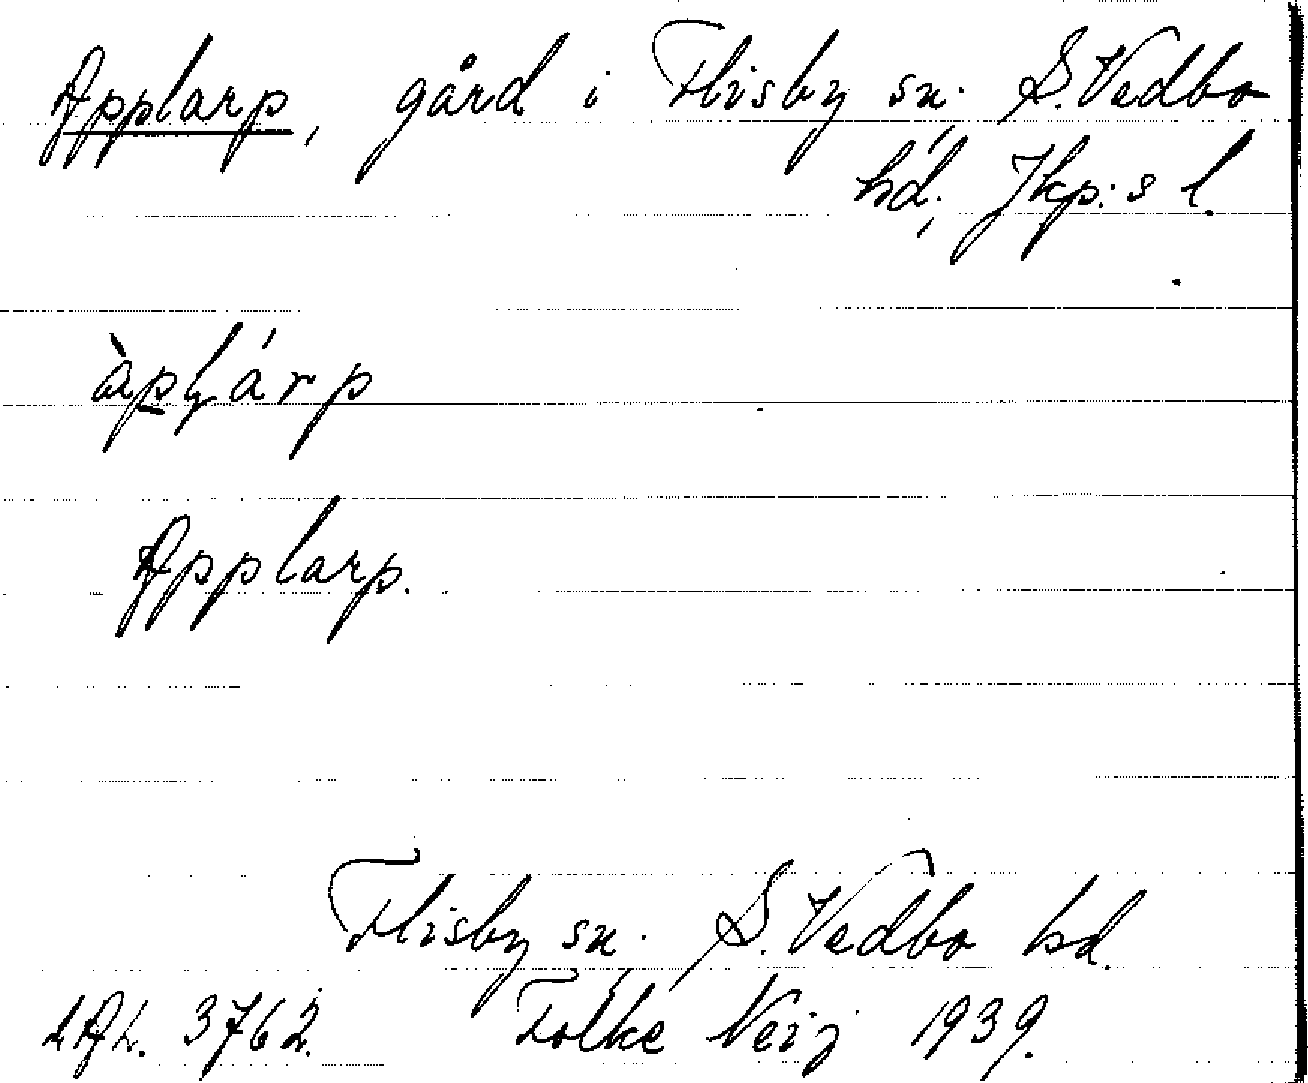 Applarp, gård i Flisby sn. S. Vedbo
hd, Jkp:s l.
àplárp
Applarp.
Flisby sn. S. Vedbo hd.
3762. Folke Neij 1939.